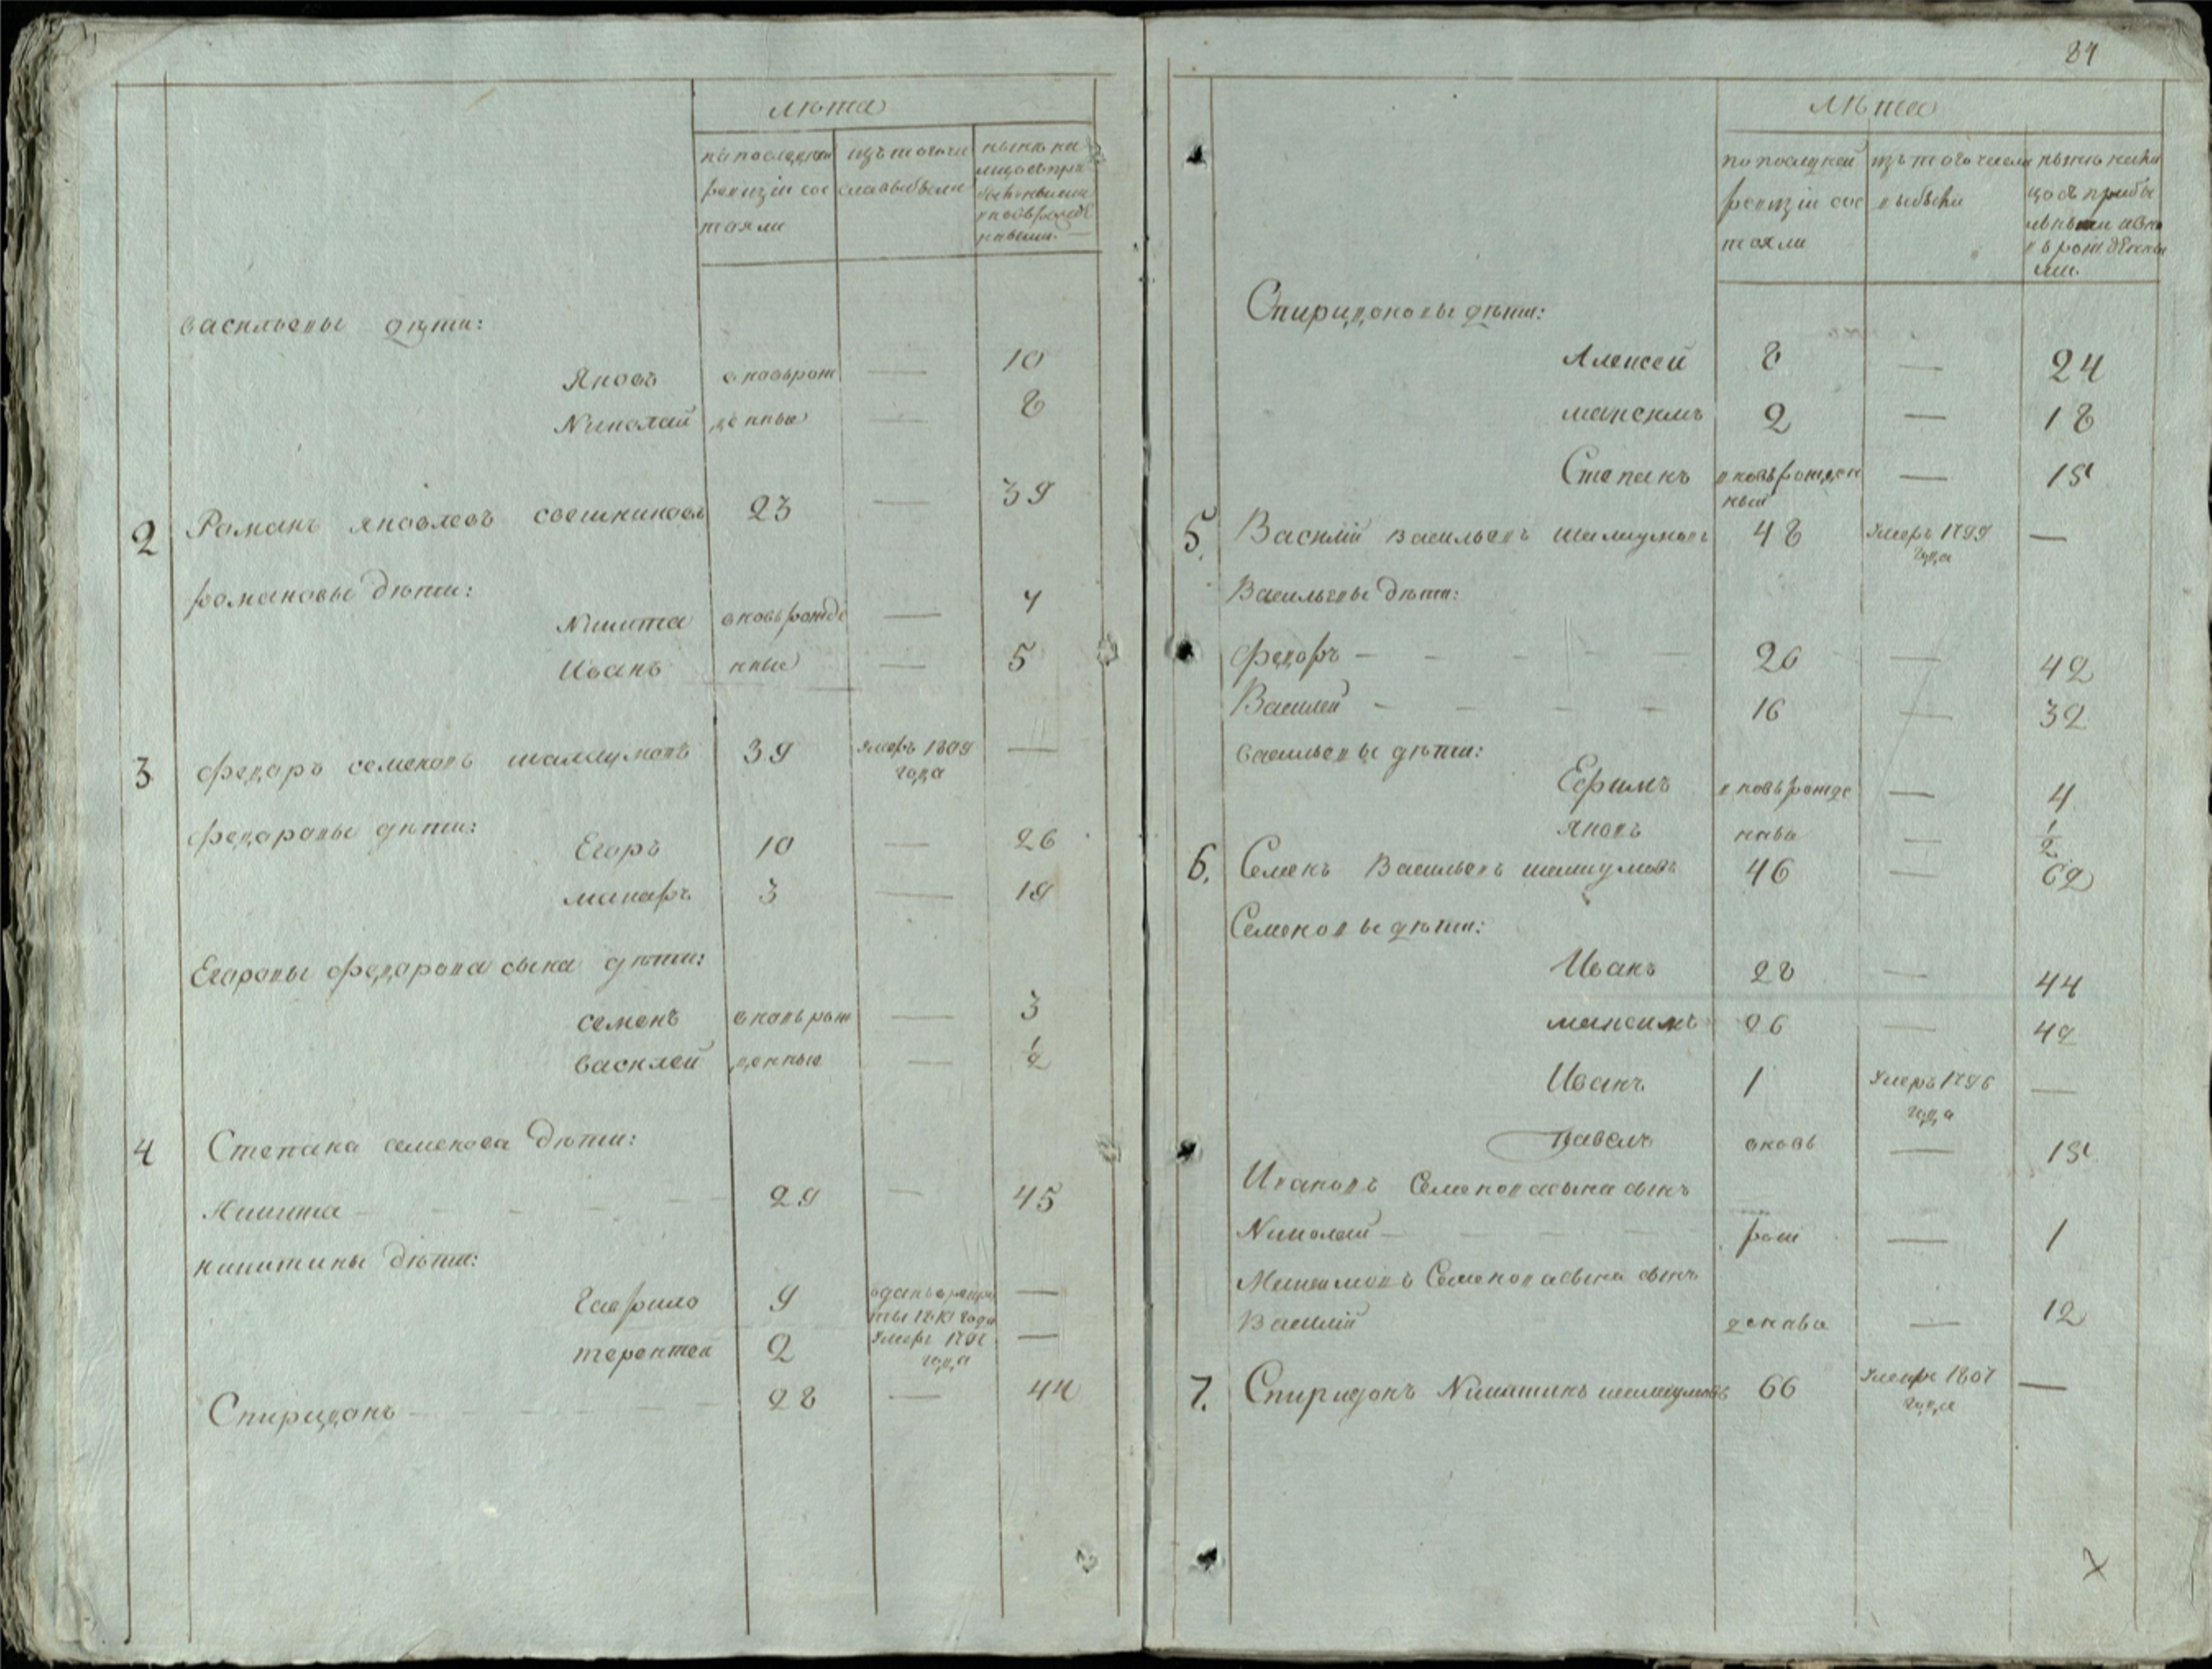 лѣта
по последней ревизіи состояли
изъ того числа выбыли
ныне на лицо съ прибылыми и новорожденными
васильевы дѣти:
Яковъ вновьрож — 10
Николай денные — 8
2 Романъ яковлевъ свешниковъ 23 — 39
романовы дѣти:
Никита вновьрожде — 7
Иванъ нные — 5
3 Федаръ семеновъ шалгумовъ 39 умеръ 1809 года —
Федаровы дѣти:
Егоръ 10 — 26
макаръ 3 — 19
Егаровы Федарова сына дѣти:
семенъ вновьрож — 3
василей денные — ½
4 Степана семенова дѣти:
Никита 29 — 45
никитины дѣти:
Гаврило 9 отданъ в рекруты 1810 года —
терентей 2 умеръ года —
Спиридонъ 28 — 44
84
лѣта
по последней ревизіи состояли
изъ того числа выбыли
ныне налицо съ прибылыми и вновь рожденными
Спиридоновы дѣти:
Алексей 8 — 24
максимъ 2 — 18
Степанъ вновьрожденный — 15
5. Василій васильевъ шалгумовъ 48 умеръ 1799 года —
Васильевы дѣти:
Федоръ — 26 — 42
Василей — 16 — 32
васильевы дѣти:
Ефимъ вновьрожде — 4
яковъ ные — ½
6. Семенъ Васильевъ шалгумовъ 46 — 62
Семеновы дѣти:
Иванъ 28 — 44
максимъ 26 — 42
Иванъ 1 умеръ 1796 года —
павелъ вновь — 15
Ивановъ Семенова сына сынъ
Николай — рож — 1
Максимовъ Семенова сына сынъ
Василій денные — 12
7. Спиридонъ Никитинъ шалгумовъ 66 умеръ 1807 года —